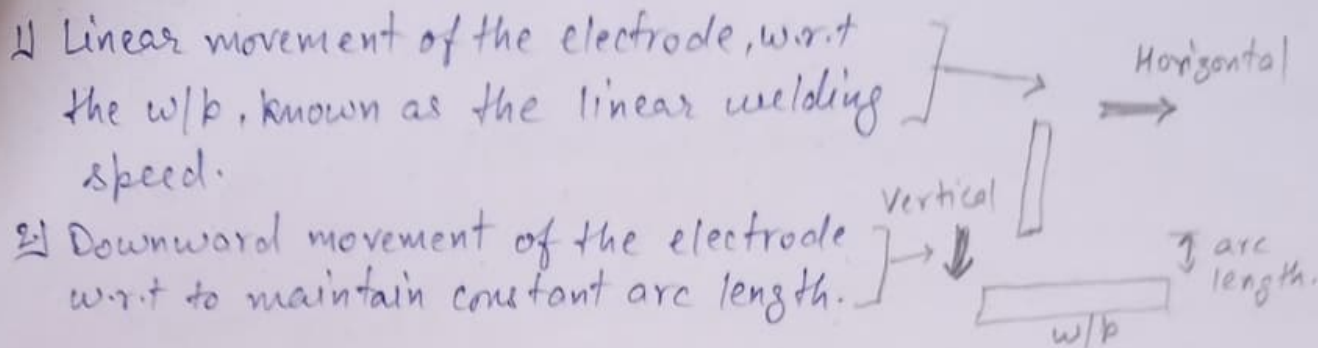 1) Linear movement of the electrode, w.r.t
the w/p, known as the linear welding
speed.
Horizontal
2) Downward movement of the electrode
w.r.t to maintain constant arc length.
Vertical
arc
length.
w/p